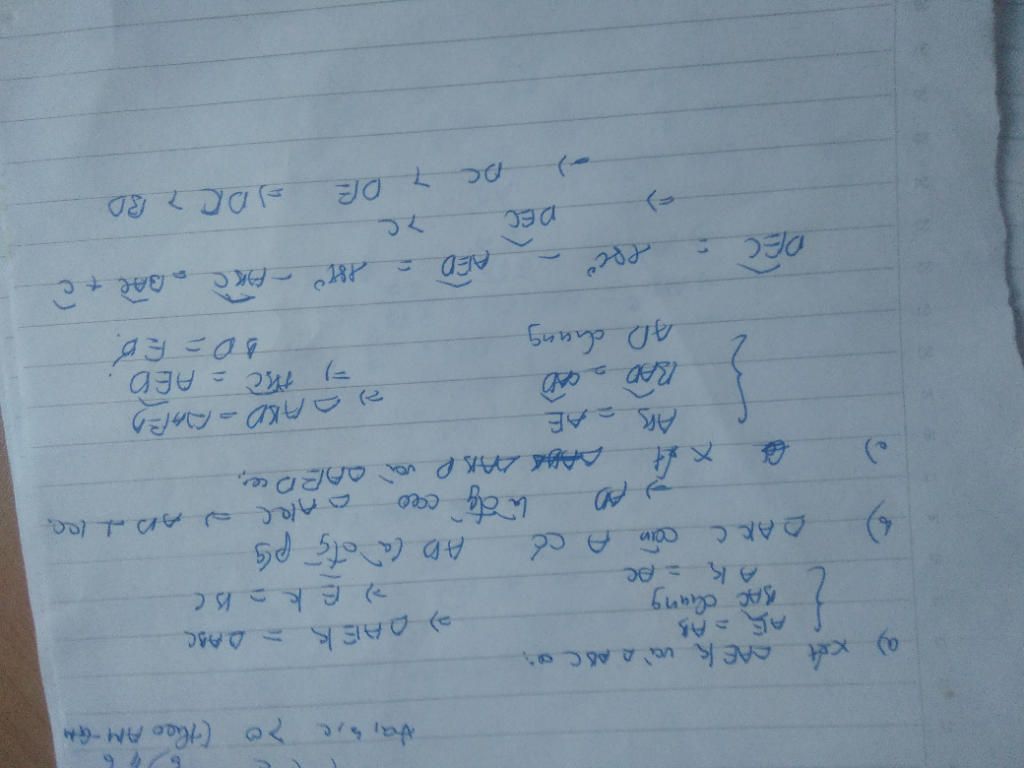 ∀a, b, c > 0 (theo AM-GM
a) xét ΔAEK và ΔABC có:
AE = AB
BAC chung
AK = AC
=> ΔAEK = ΔABC
=> EK = BC
b) ΔAKC cân A có AD là đg pg
=> AD là đg cao ΔAKC => AD ⊥ KC.
c) xét ΔABD và ΔAED có:
AB = AE
BAD = CAD
AD chung
=> ΔABD = ΔAED
=> ABC = AED
BD = ED.
DEC = 180° - AED = 180° - ABC = BAC + C
=> DEC > C
=> DC > DE => DC > BD